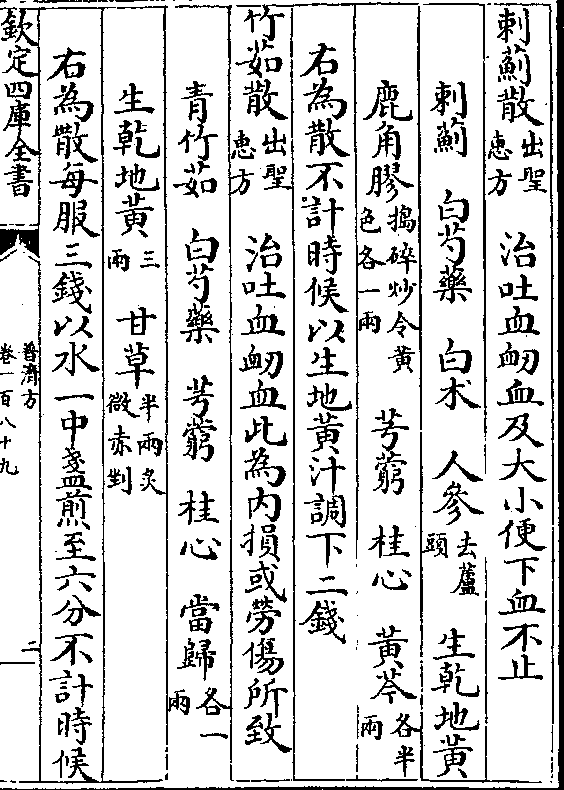 刺薊散出聖惠方　治吐血衂血及大小便下血不止
刺薊　白芍藥　白朮　人參去蘆頭　生乾地黃
鹿角膠搗碎炒令黃色各一兩　芎藭　桂心　黃芩各半兩
右為散不計時候以生地黃汁調下二錢
竹茹散出聖惠方　治吐血衂血此為内損或勞傷所致
青竹茹　白芍藥　芎藭　桂心　當歸各一兩
生乾地黃三兩　甘草半兩炙微赤剉
右為散每服三錢以水一中盞煎至六分不計時候
欽定四庫全書
普濟方
卷一百八十九
二